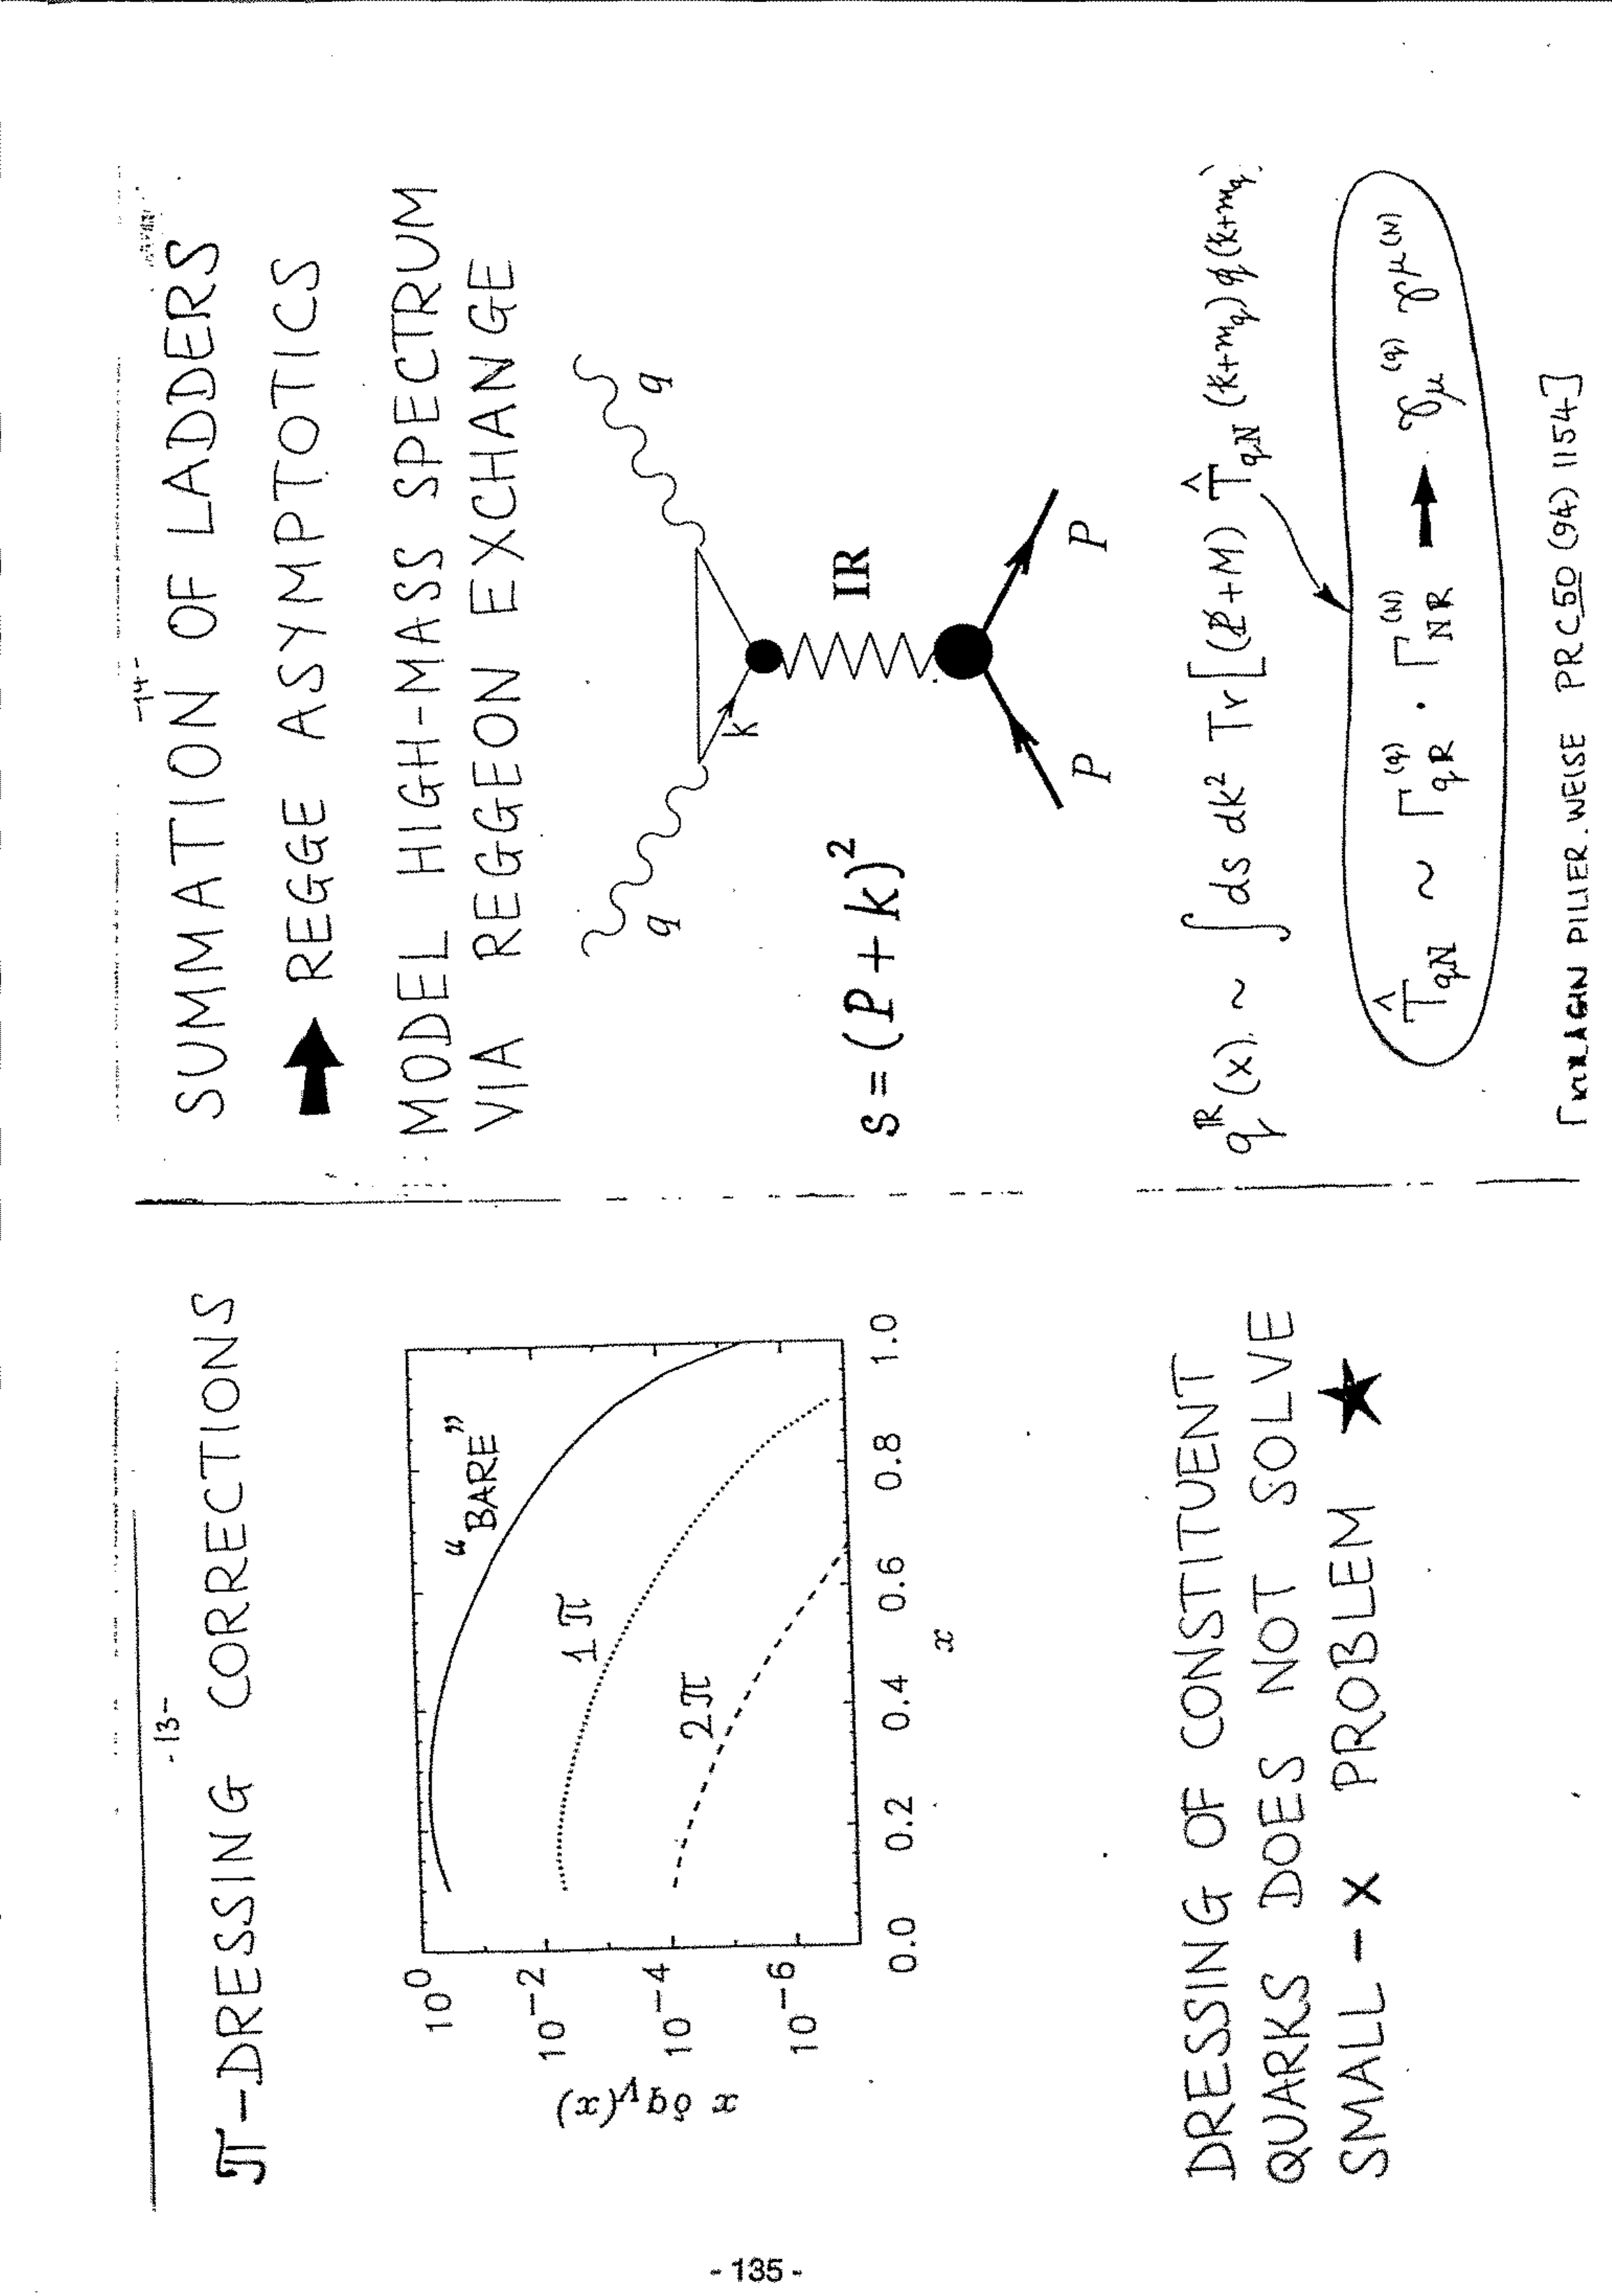 -13-
π-DRESSING CORRECTIONS
"BARE"
1π
2π
10⁰
10⁻²
10⁻⁴
10⁻⁶
x δqᵥ(x)
0.0 0.2 0.4 0.6 0.8 1.0
x
DRESSING OF CONSTITUENT
QUARKS DOES NOT SOLVE
SMALL-x PROBLEM ★
-14-
SUMMATION OF LADDERS
➡ REGGE ASYMPTOTICS
MODEL HIGH-MASS SPECTRUM
VIA REGGEON EXCHANGE
q q
k
IR
s = (P + k)²
P P
q^IR(x) ~ ∫ ds dk² Tr[(P̸+M) T̂_qN (k̸+m_q) q̸ (k̸+m_q)
T̂_qN ~ Γ_qR^(q) · Γ_NR^(N) ➡ γ_μ^(q) γ^μ(N)
PILLER. WEISE PRC50 (94) 1154]
- 135 -